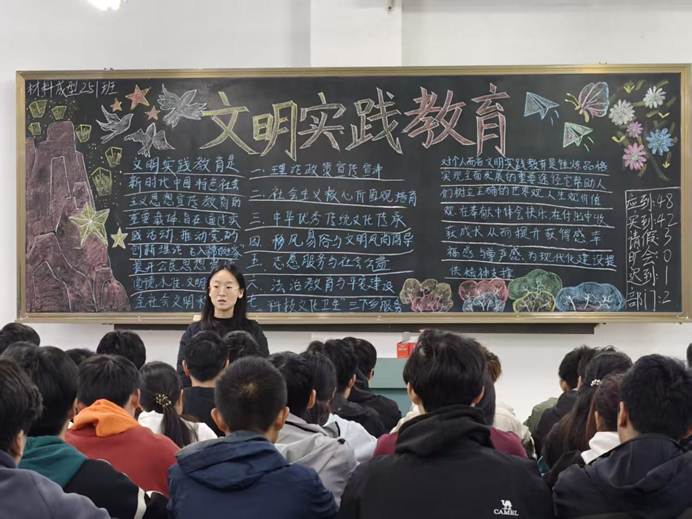 材料成型251班
文明实践教育
文明实践教育是
新时代中国特色社会
主义思想宣传教育的
重要载体,旨在通过实
践活动,推动党的
一、理论政策宣传宣讲
二、社会主义核心价值观培育
三、中华优秀传统文化传承
四、移风易俗与文明风尚倡导
五、志愿服务与社会公益
六、法治教育与平安建设
七、“科技文化卫生”三下乡服务
对个人而言文明实践教育是锤炼品格
实现全面发展的重要途径它帮助人
们树立正确的世界观、人生观、价值
观,在奉献中体会快乐,在付出中收
获成长,从而提升获得感、幸
福感、满足感,为现代化建设提
供精神支撑
应到:48
实到:42
请假:3
旷会:0
迟到:1
部门:2
CAMEL